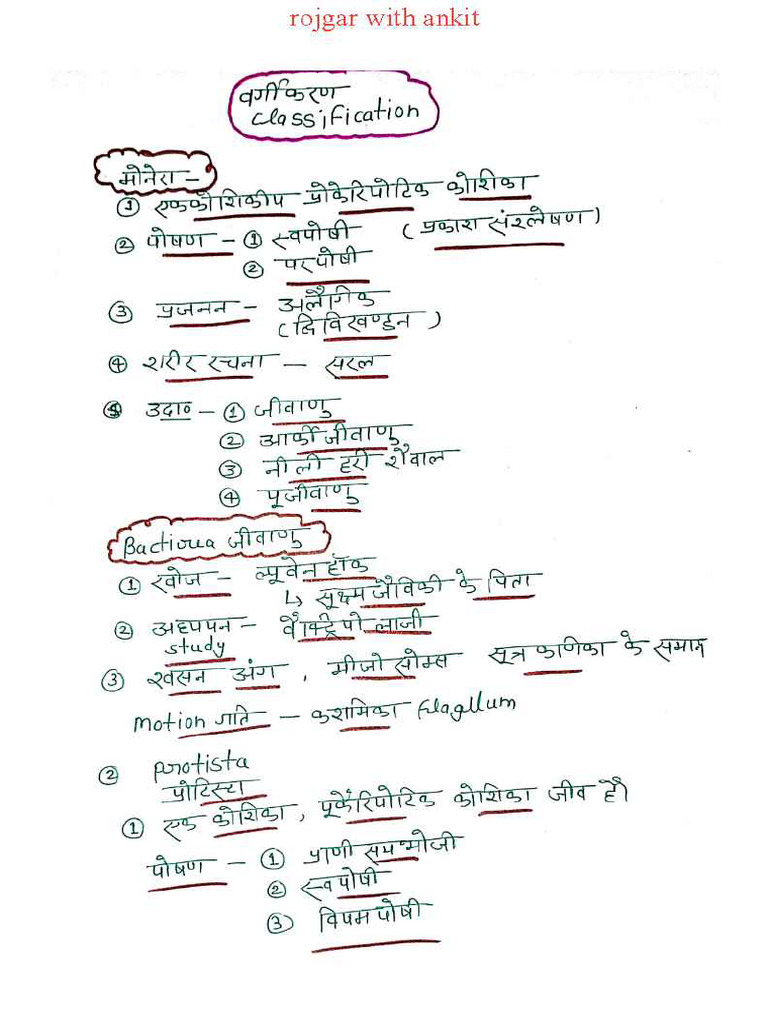 rojgar with ankit
वर्गीकरण
classification
मोनेरा –
① एककोशिकीय प्रोकेरियोटिक कोशिका
② पोषण – ① स्वपोषी (प्रकाश संश्लेषण)
② परपोषी
③ प्रजनन – अलैगिक
(द्विविखण्डन)
④ शरीर रचना – सरल
⑤ उदा० – ① जीवाणु
② आर्की जीवाणु
③ नीली हरी शैवाल
④ पूजीवाणु
Bacteria जीवाणु
① खोज – ल्यूवेन हॉक
↳ सूक्ष्म जैविकी के पिता
② अध्ययन – बैक्ट्रियोलाजी
study
③ श्वसन अंग, मीजोसोम्स सूत्र कणिका के समान
motion गति – कशामिका flagllum
② protista
प्रोटिस्टा
① एक कोशिका, यूकेरियोटिक कोशिका जीव है।
पोषण – ① प्राणी समभोजी
② स्वपोषी
③ विषमपोषी